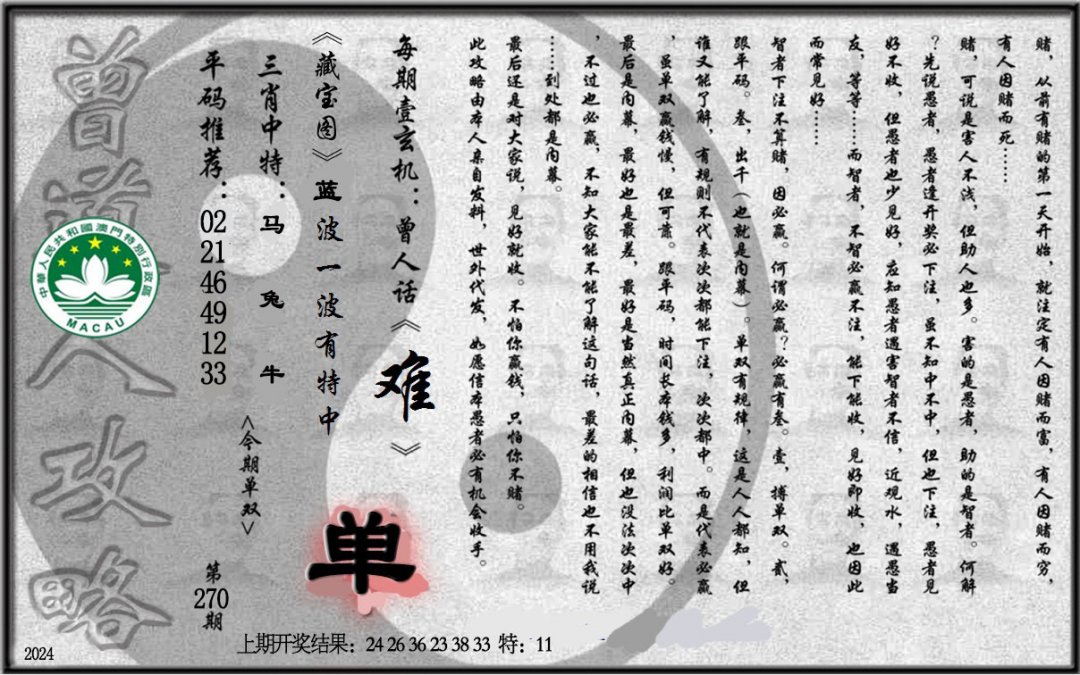 赌，从前有赌的第一天开始，就注定有人因赌而富，有人因赌而穷，
有人因赌而死……
赌，可说是害人不浅，但助人也多。害的是愚者，助的是智者。何解
？先说愚者，愚者逢开奖必下注，虽不知中不中，但也下注，愚者见
好不收，但愚者也少见好，应知愚者遇害智者不信，近观水，遇愚当
友，等等……而智者，不智必赢不注，能下能收，见好即收，也因此
而常见好……
智者下注不算赌，因必赢。何谓必赢？必赢有叁。壹，搏单双。贰，
跟平码。叁，出千（也就是内幕）。单双有规律，这是人人都知，但
谁又能了解，有规则不代表次次都能下注，次次都中。而是代表必赢
，虽单双赢钱慢，但可靠。跟平码，时间长本钱多，利润比单双好。
最后是内幕，最好也是最差，最好是当然真正内幕，但也没法次次中
，不过也必赢，不知大家能不能了解这句话，最差的相信也不用我说
……到处都是内幕。
最后还是对大家说，见好就收。不怕你赢钱，只怕你不赌。
此攻略由本人亲自发料，世外代发，如愿信本愚者必有机会收手。
每期壹玄机：曾人话《难》
《藏宝图》蓝波一波有特中
单
三肖中特：马 兔 牛
<今期单双>
平码推荐：02 21 46 49 12 33
第270期
曾道人攻略
中華人民共和國澳門特別行政區
MACAU
上期开奖结果：24 26 36 23 38 33 特：11
2024